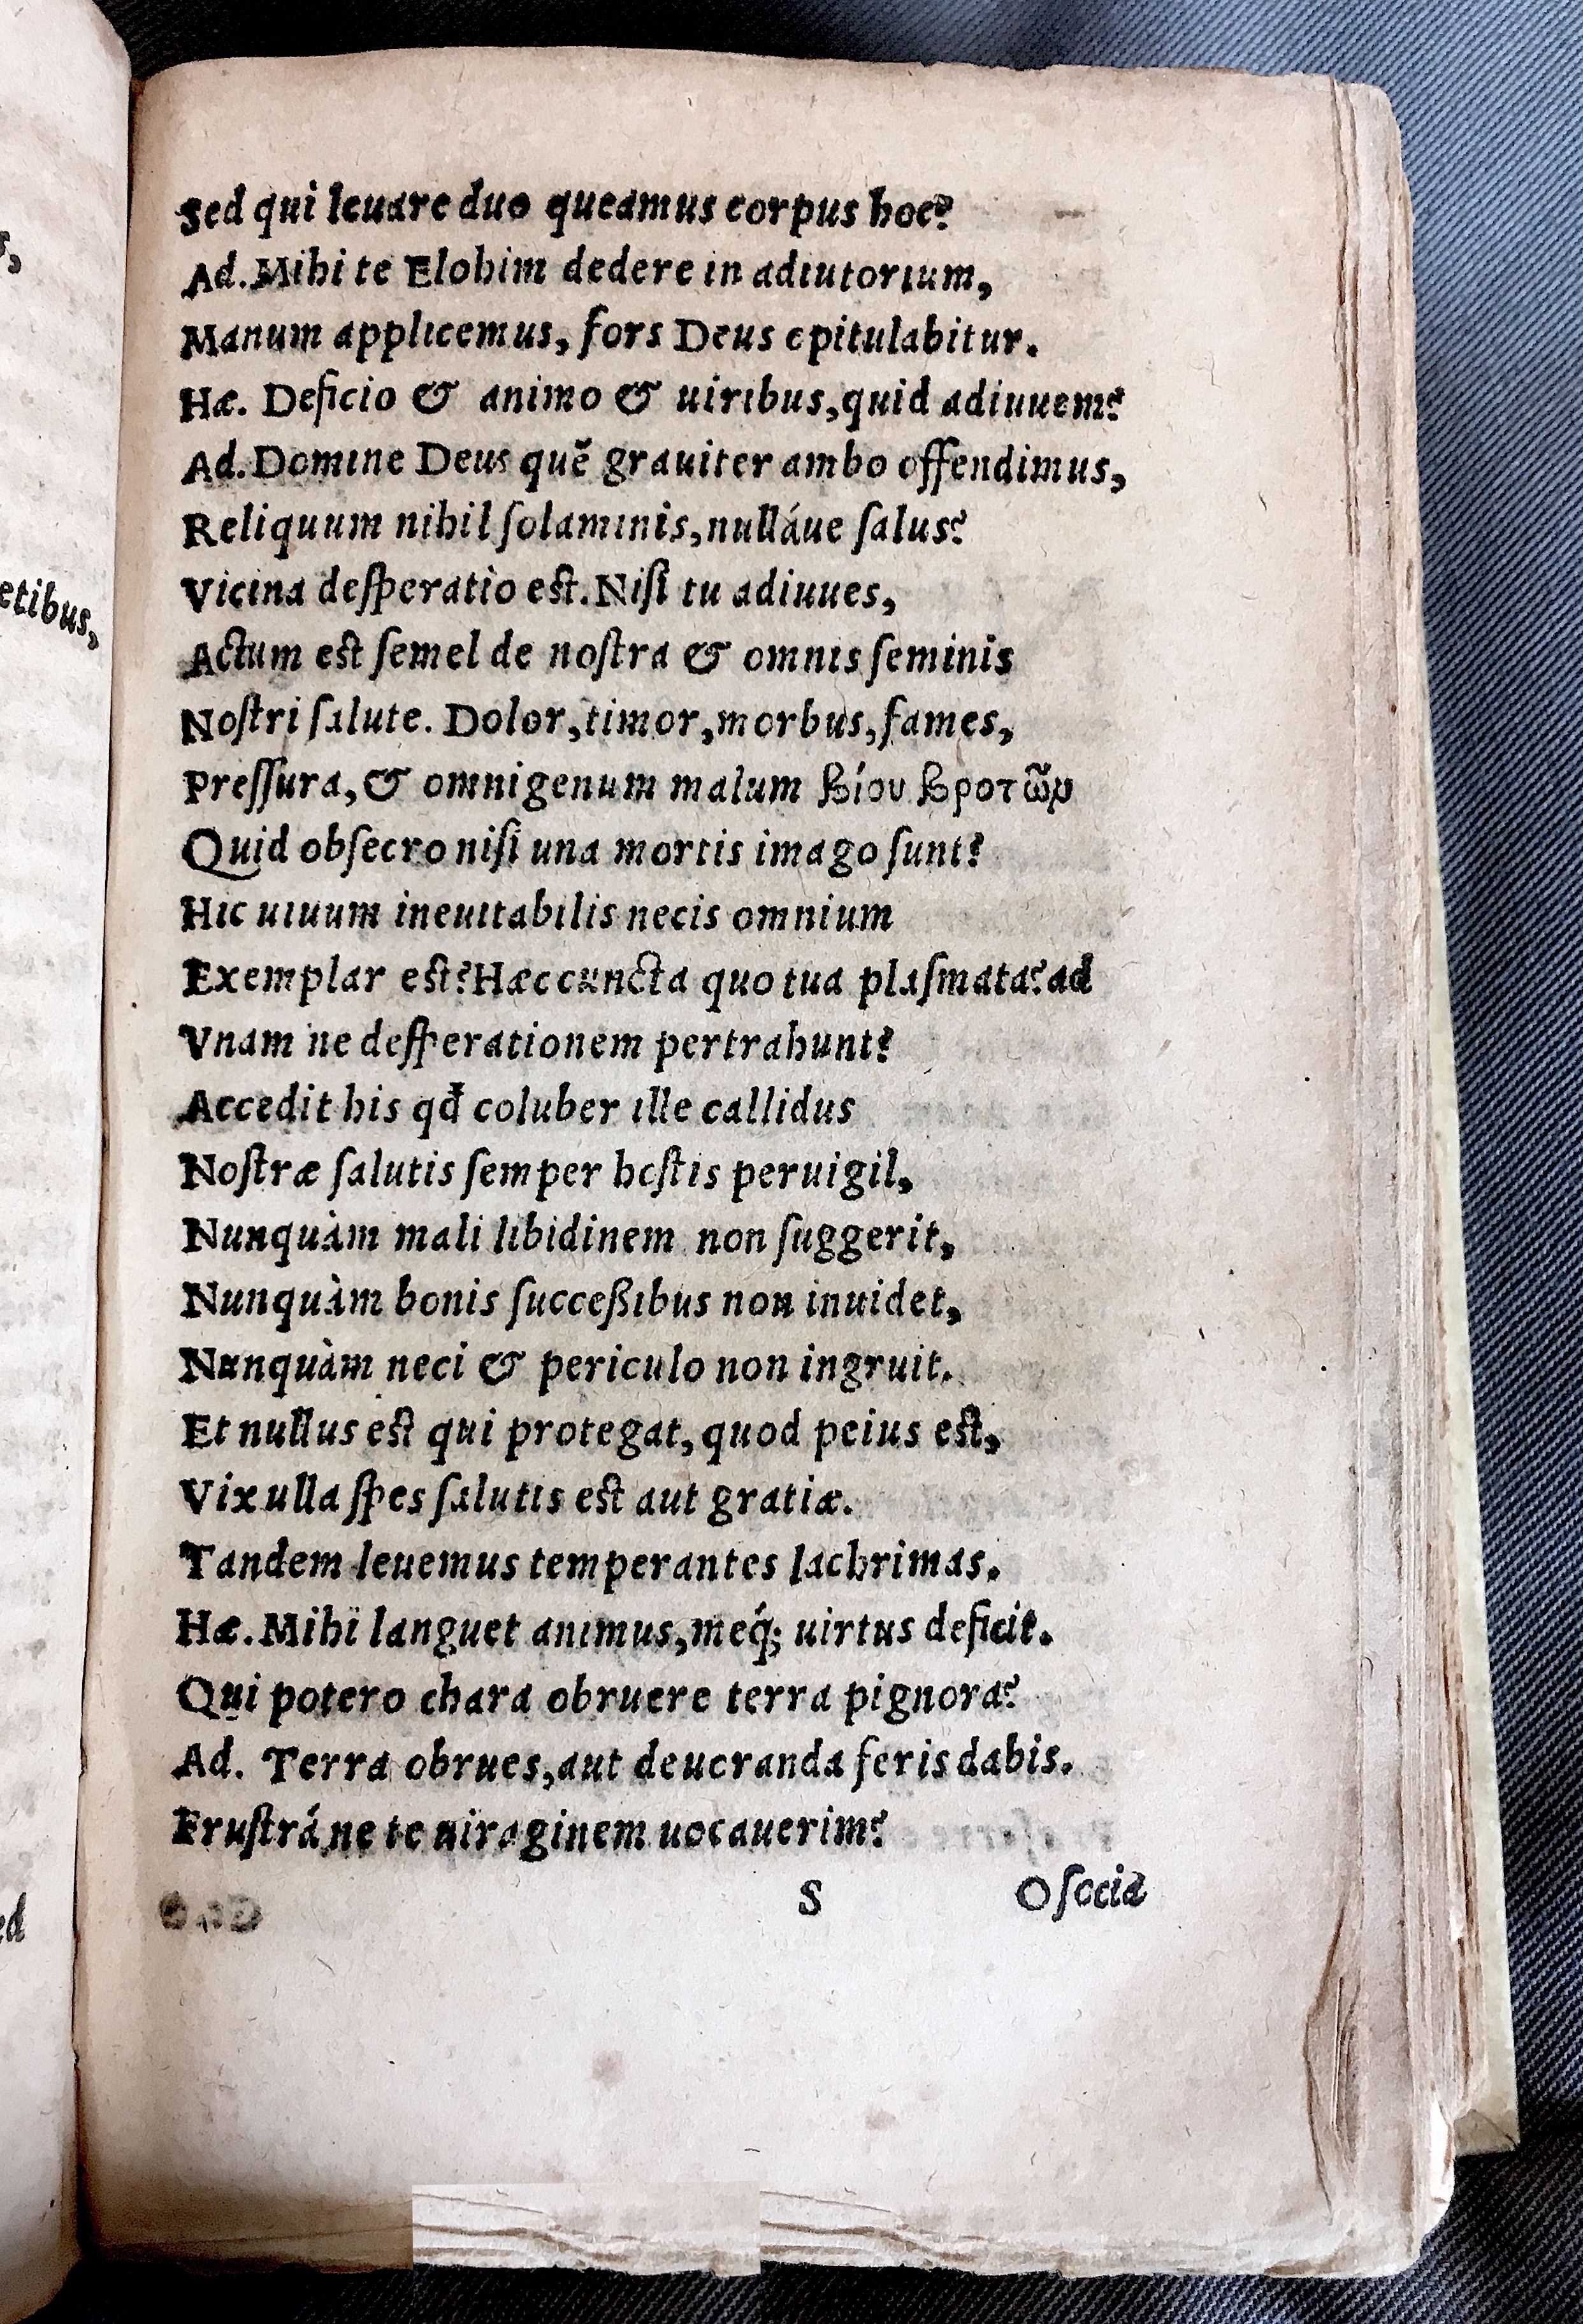 Sed qui leuare duo queamus corpus hoc?
Ad. Mihi te Elohim dedere in adiutorium,
Manum applicemus, fors Deus opitulabitur.
Hæ. Deficio & animo & uiribus, quid adiuuem?
Ad. Domine Deus quē grauiter ambo offendimus,
Reliquum nihil ſolaminis, nulláue ſalus?
Vicina deſperatio eſt. Niſi tu adiuues,
Actum eſt ſemel de noſtra & omnis ſeminis
Noſtri ſalute. Dolor, timor, morbus, fames,
Preſſura, & omnigenum malum βίου βροτῶν
Quid obſecro niſi una mortis imago ſunt?
Hic uiuum ineuitabilis necis omnium
Exemplar eſt? Hæc cuncta quo tua plaſmata? ad
Vnam ne deſperationem pertrahunt?
Accedit his qđ coluber ille callidus
Noſtræ ſalutis ſemper hoſtis peruigil,
Nunquàm mali libidinem non ſuggerit,
Nunquàm bonis ſucceßibus non inuidet,
Nunquàm neci & periculo non ingruit.
Et nullus eſt qui protegat, quod peius eſt,
Vix ulla ſpes ſalutis eſt aut gratiæ.
Tandem leuemus temperantes lachrimas.
Hæ. Mihi languet animus, meq́; uirtus deficit.
Qui potero chara obruere terra pignora?
Ad. Terra obrues, aut deuoranda feris dabis.
Fruſtrá ne te uiraginem uocauerim?
S O ſocia
s,
etibus,
ed